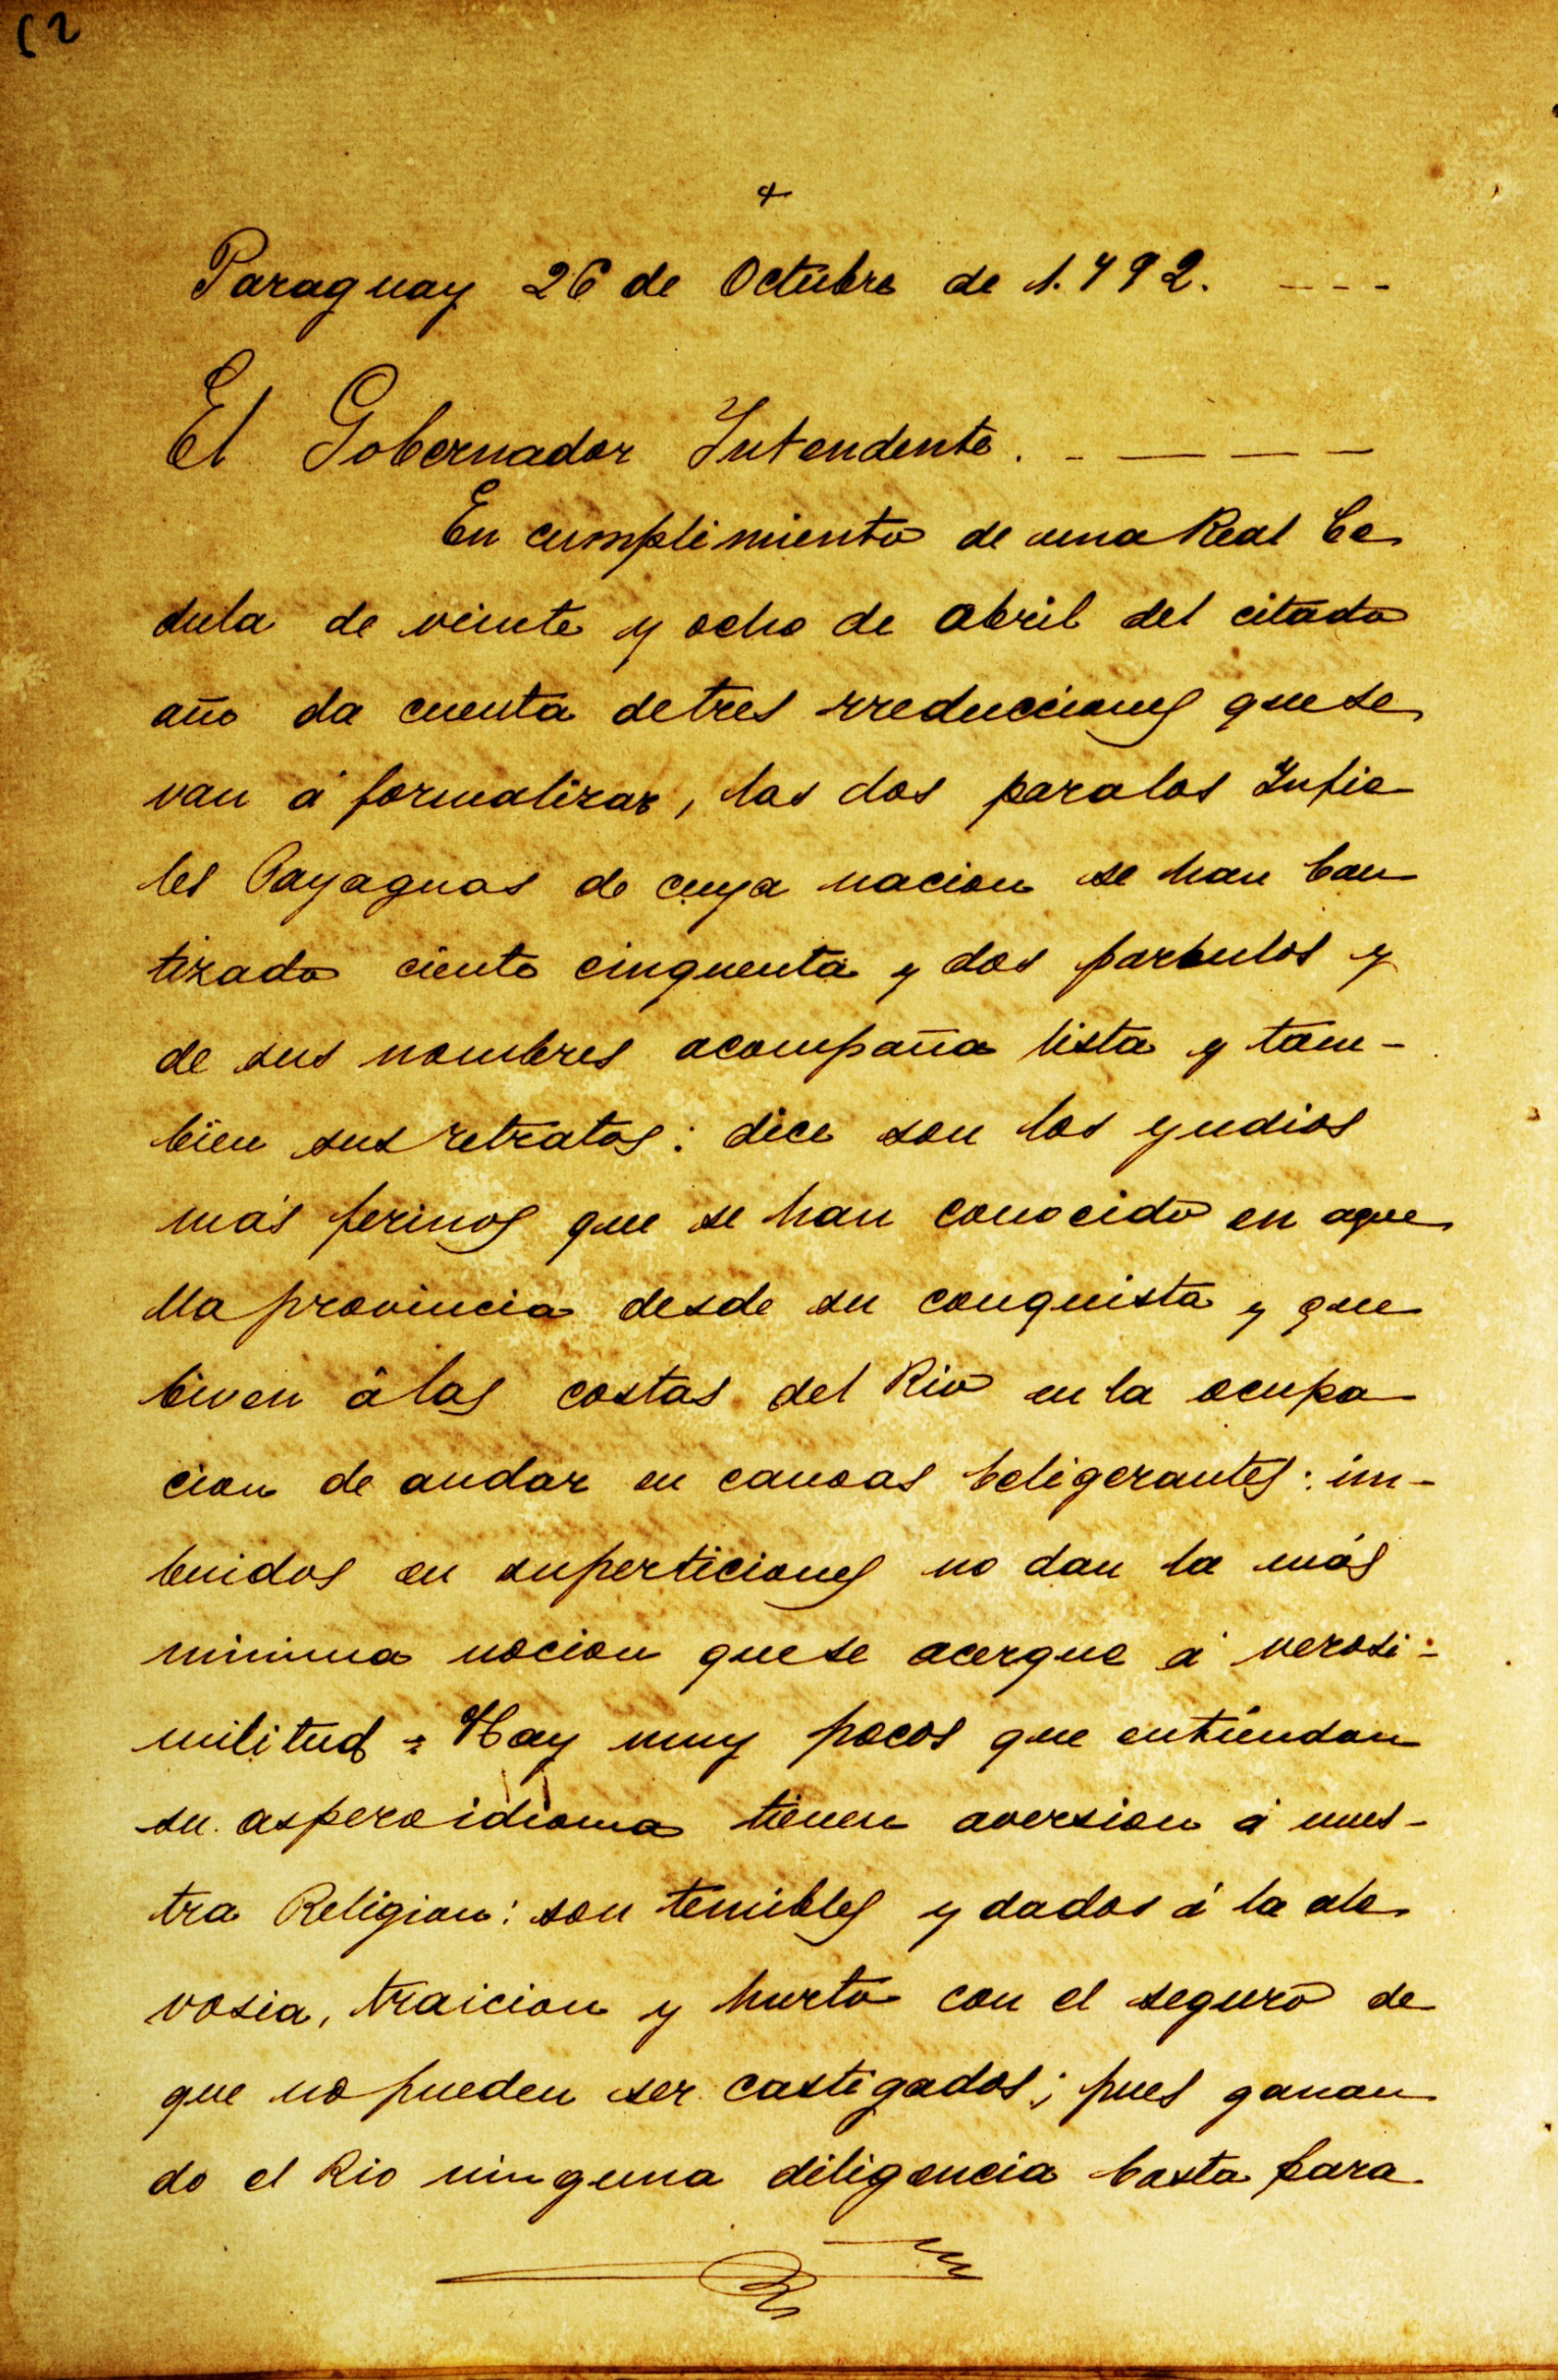 Paraguay 26 de Octubre de 1.792. - - -
El Gobernador Intendente. - - - -
En cumplimiento de una Real Ce
dula de veinte y ocho de abril del citado
año da cuenta de tres rreducciones que se
van á formalizar, las dos para los Infie
les Payaguas de cuya nacion se han bau
tizado ciento cinquenta y dos parbulos y
de sus nombres acompaña lista y tam-
bien sus retratos: dice son los yndios
más ferinos que se han conocido en aque
lla provincia desde su conquista y que
biven á las costas del Rio en la ocupa
cion de andar en canoas beligerantes: im-
buidos en superticiones no dan la más
minima nocion que se acerque á verosi-
militud = Hay muy pocos que entiendan
su aspero idioma tienen aversion á nues-
tra Religion: son temibles y dados á la ale
vosia, traicion y hurto con el seguro de
que no pueden ser castigados; pues ganan
do el Rio ninguna diligencia basta para